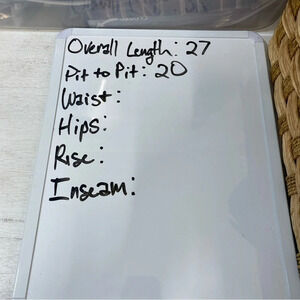 Overall Length: 27
Pit to Pit: 20
Waist:
Hips:
Rise:
Inseam: